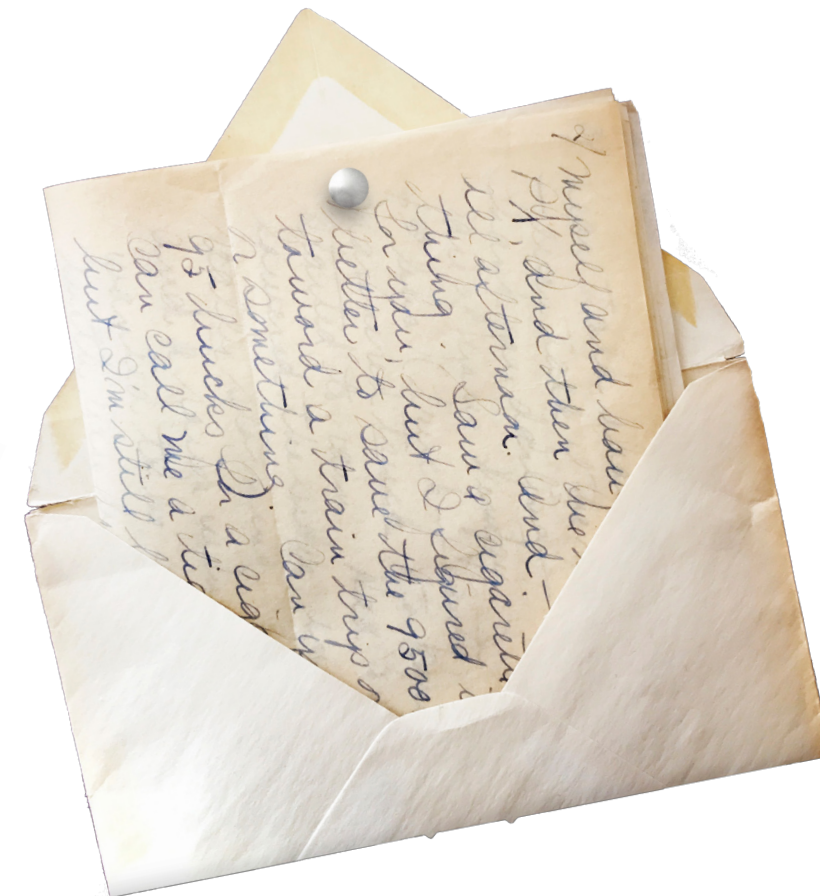 myself and
PX, and then the
afternoon. And –
thing. Saw a cigarette
for you, but I figured
better to save the 9500
toward a train trip
r something. Can
95 bucks a
can call me a
but I'm still